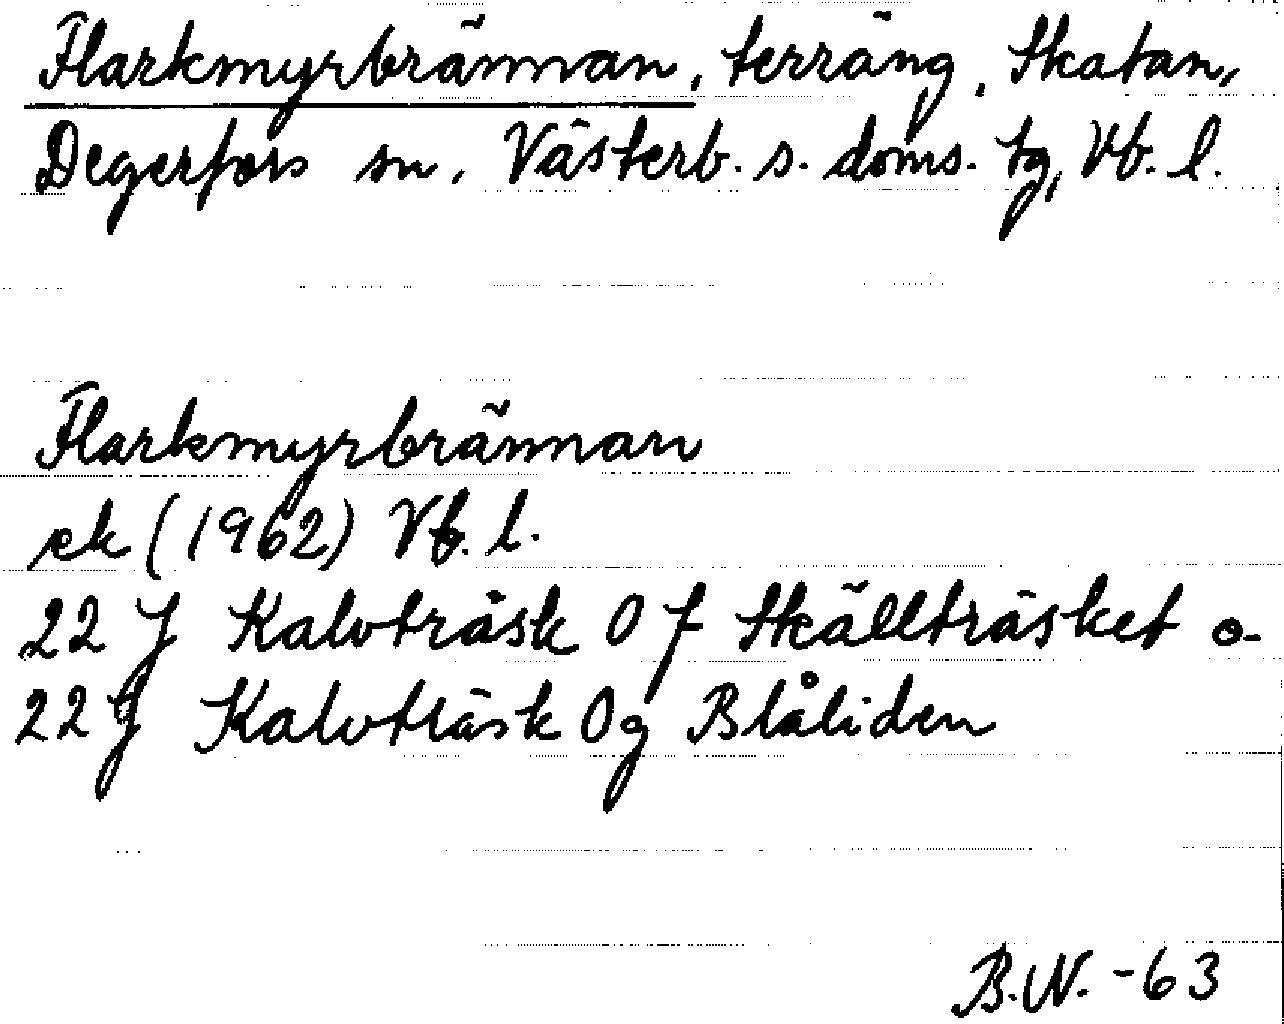 Flarkmyrbrännan, terräng, Skatan,
Degerfors sn, Västerb. s. doms. tg, Vb. l.
Flarkmyrbrännan
ek (1962) Vb. l.
22 J Kalvträsk 0 f Skällträsket o.
22 J Kalvträsk 0g Blåliden
B.N. -63